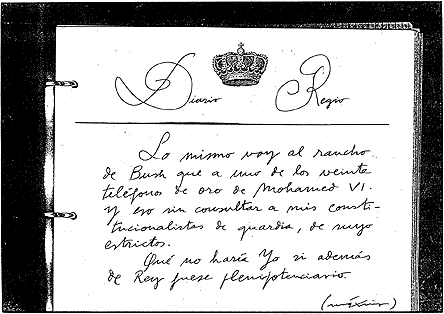 Diario Regio
Lo mismo voy al rancho
de Bush que a uno de los veinte
teléfonos de oro de Mohamed VI.
Y eso sin consultar a mis consti-
tucionalistas de guardia, de suyo
estrictos.
Qué no haría Yo si además
de Rey fuese plenipotenciario.
(máximo)